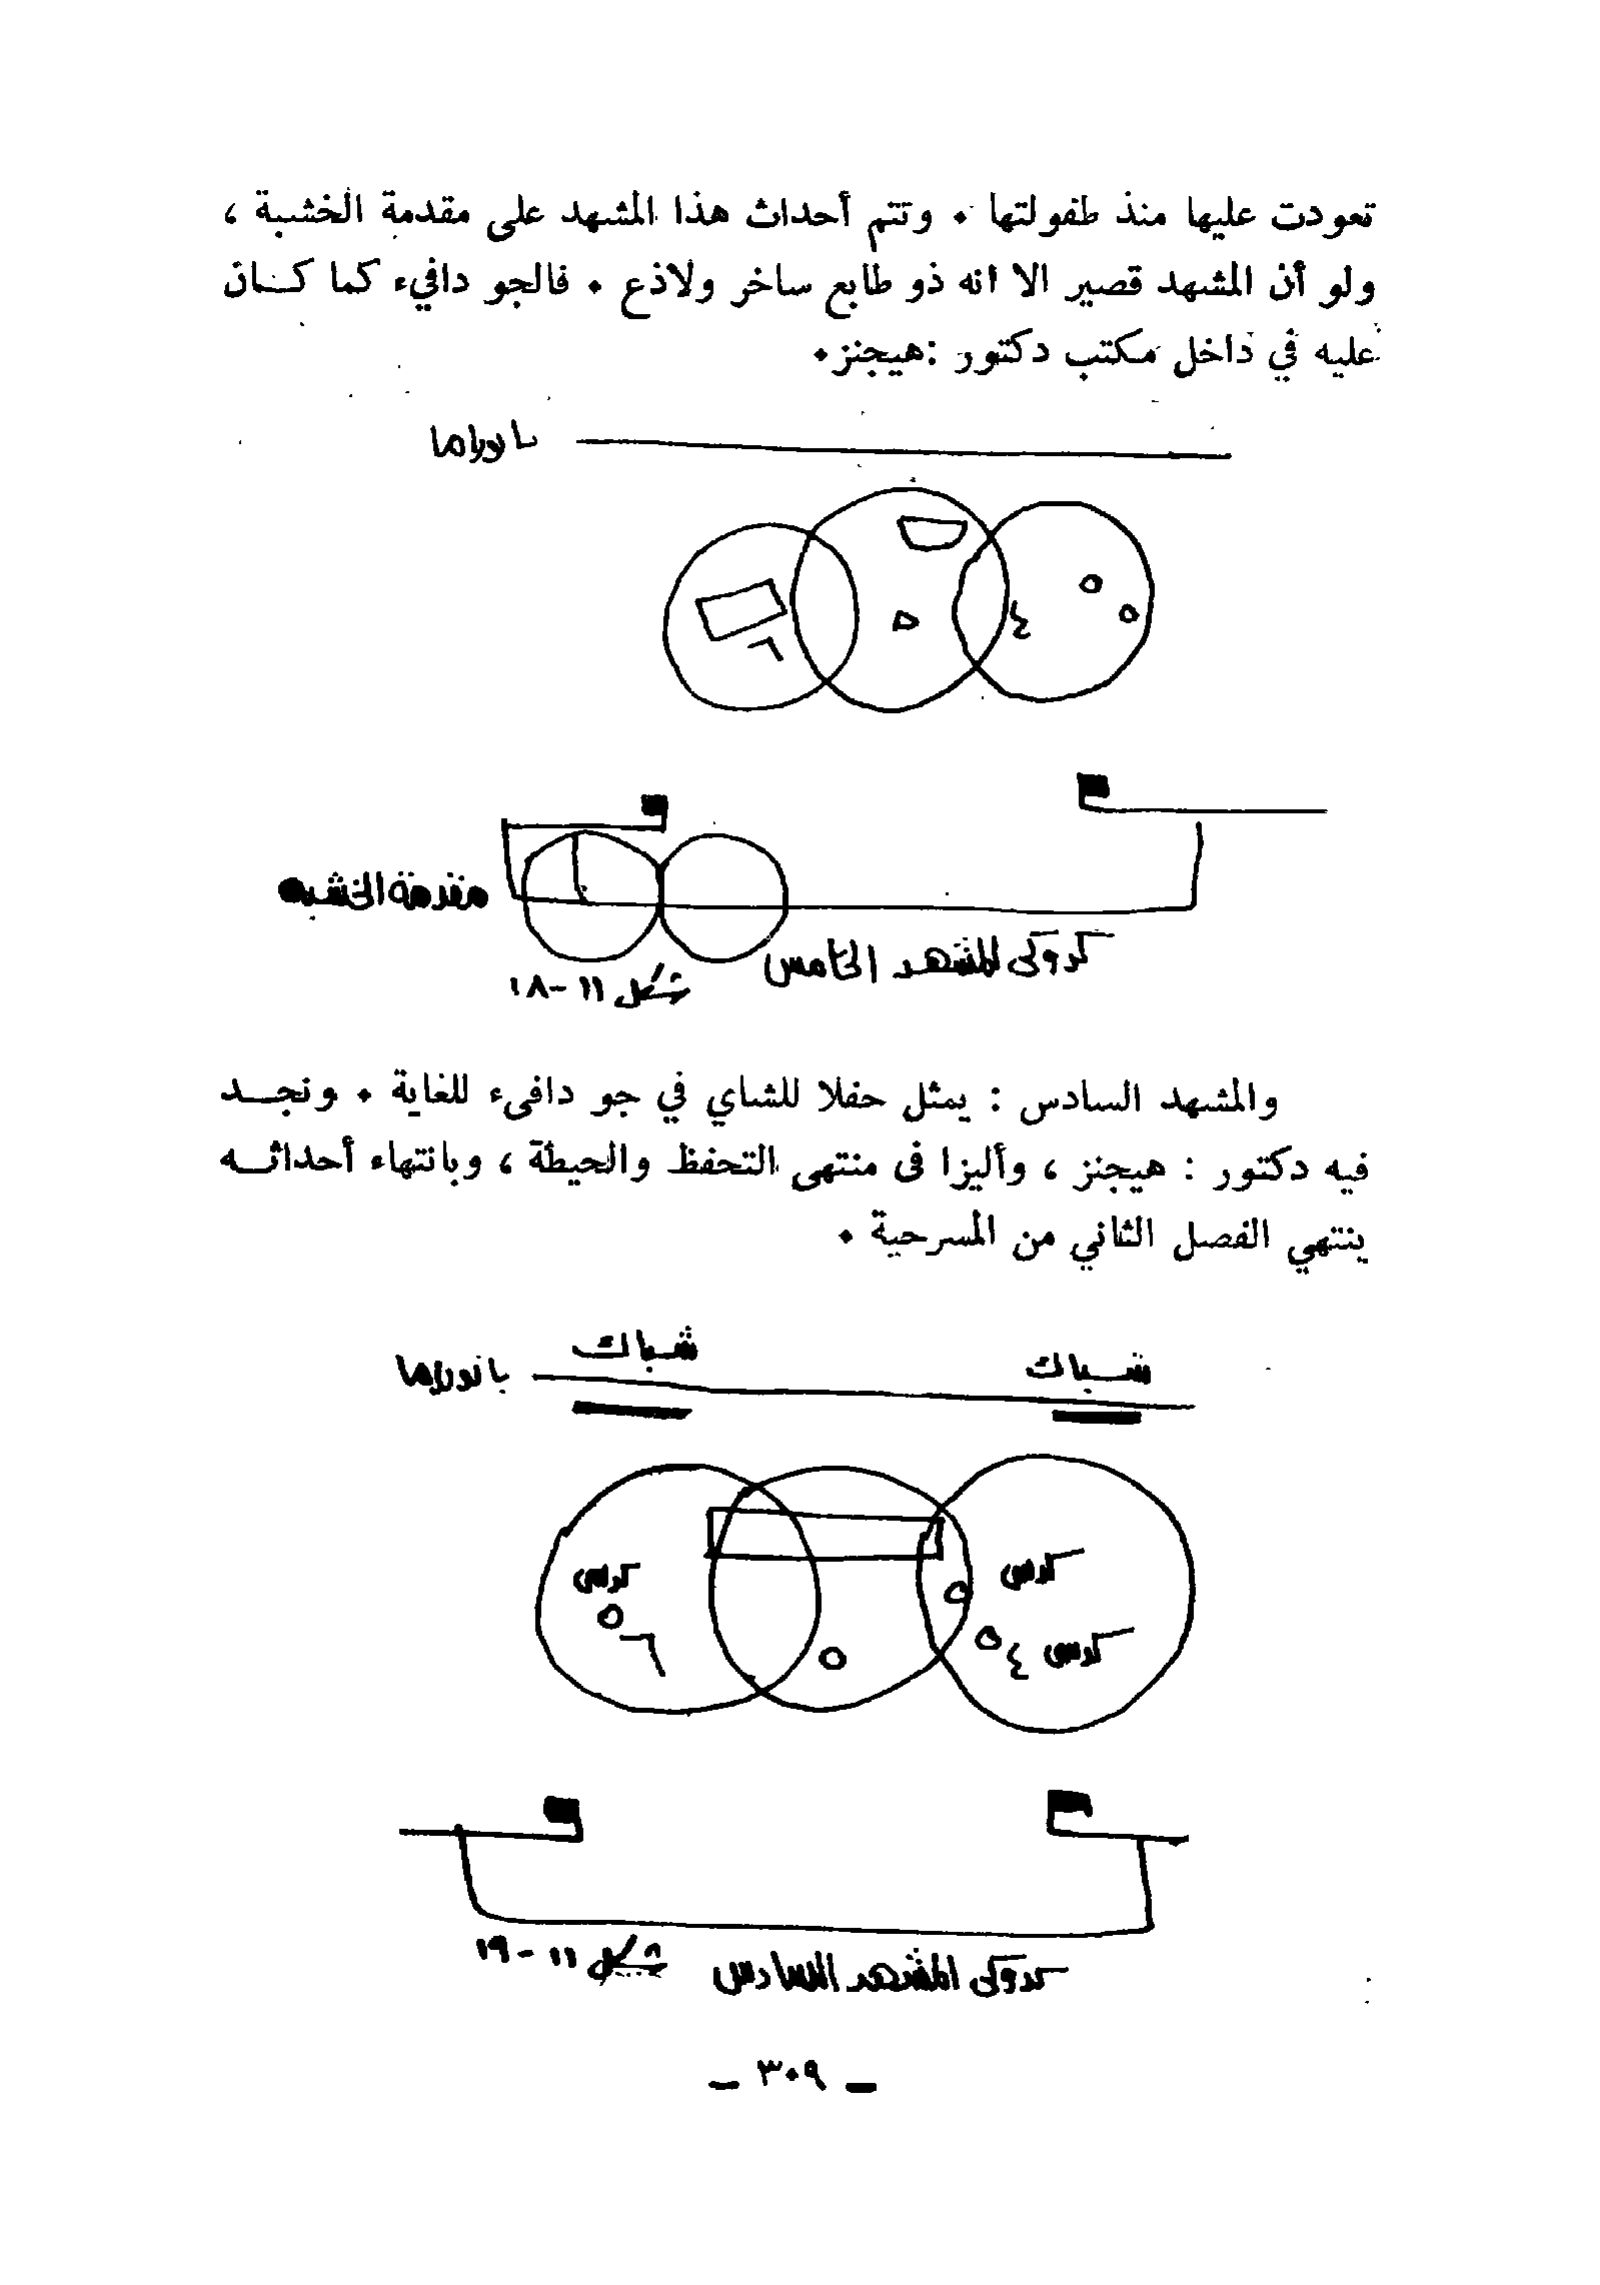 تعودت عليها منذ طفولتها ٠ وتتم أحداث هذا المشهد على مقدمة الخشبة ،
ولو أن المشهد قصير الا انه ذو طابع ساخر ولاذع ٠ فالجو دافيء كما كــان
عليه في داخل مكتب دكتور :هيجنز٠
بانوراما
٥
٤
٦
مقدمة الخشبه
كروكى المشهد الخامس
شكل ١١ -١٨
والمشهد السادس : يمثل حفلا للشاي في جو دافىء للغاية ٠ ونجــد
فيه دكتور : هيجنز ، وأليزا فى منتهى التحفظ والحيطة ، وبانتهاء أحداثــه
ينتهي الفصل الثاني من المسرحية ٠
شباك
شباك
بانوراما
كرسى
كرسى
٥
٦
٥
٤
كرسى
كروكى المشهد السادس
شكل ١١ - ١٩
ـ ٣٠٩ ـ